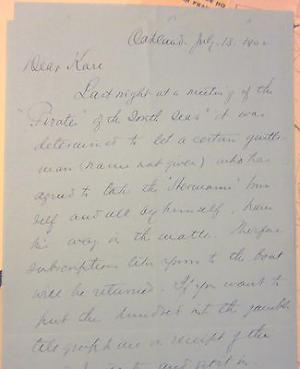 Oakland. July. 13. 190
Dear Kare
Last night at a meeting of the
"Pirates" of the South Seas" it was
determined to let a certain gentle-
man (name not given) who has
agreed to take the "Hermann" him
self and all by himself, have
his way in the matter. Therefore
subscriptions like yours to the boat
will be returned. If you want to
put the hundred into the gamble
telegraph me on receipt of the
and